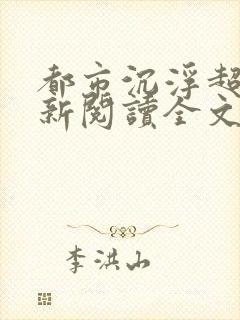 都市沉浮超
新閱讀全文
李洪山